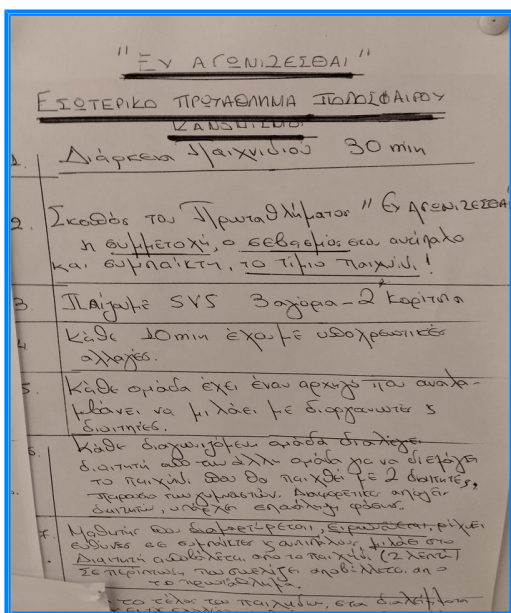 "ΕΥ ΑΓΩΝΙΖΕΣΘΑΙ"
ΕΣΩΤΕΡΙΚΟ ΠΡΩΤΑΘΛΗΜΑ ΠΟΔΟΣΦΑΙΡΟΥ
ΚΑΝΟΝΙΣΜΟΙ
1. Διάρκεια Παιχνιδιού 30 min
2. Σκοπός του Πρωταθλήματος "Ευ ΑΓΩΝΙΖΕΣΘΑΙ"
η συμμετοχή, ο σεβασμός στον αντίπαλο
και συμπαίκτη, το τίμιο παιχνίδι!
3 Παίζουμε 5VS5 3 αγόρια - 2 κορίτσια
4 Κάθε 10min έχουμε υποχρεωτικές
αλλαγές.
5. Κάθε ομάδα έχει έναν αρχηγό που αναλα-
μβάνει να μιλάει με διοργανωτές ς
διαιτητές.
6. Κάθε διαγωνιζόμενη ομάδα διαλέγει
διαιτητή από την άλλη ομάδα για να διεξάγει
το παιχνίδι. Θα παιχθεί με 2 διαιτητές,
παρουσία των γυμναστών. Διαφορετικές
διαιτητών, υπάρχει επανάληψη φάσης.
7. Μαθητής που διαμαρτύρεται, ειρωνεύεται, ρίχνει
ευθύνες σε συμπαίκτες ς αντιπάλους, μιλάει στο
Διαιτητή αποβάλλεται από το παιχνίδι (2 λεπτά)
Σε περίπτωση που συνεχίζει αποβάλλεται από
το πρωτάθλημα.
το τέλος του παιχνιδιού, στα διαλείμματα